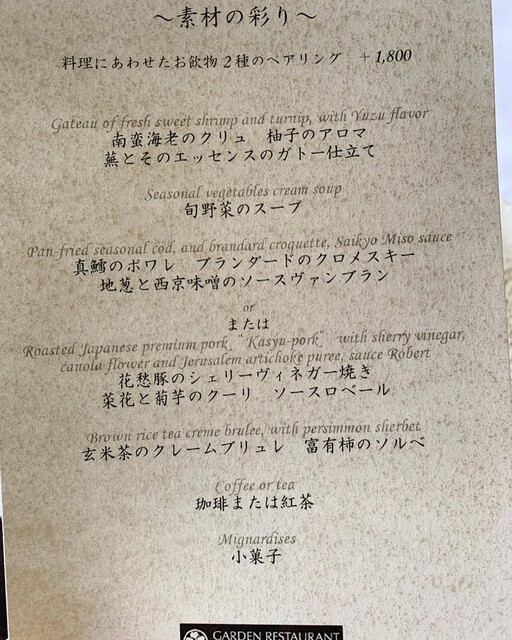 ～素材の彩り～
料理にあわせたお飲物2種のペアリング　+1,800
Gateau of fresh sweet shrimp and turnip, with Yuzu flavor
南蛮海老のクリュ　柚子のアロマ
蕪とそのエッセンスのガトー仕立て
Seasonal vegetables cream soup
旬野菜のスープ
Pan-fried seasonal cod, and brandard croquette, Saikyo Miso sauce
真鱈のポワレ　ブランダードのクロメスキー
地葱と西京味噌のソースヴァンブラン
or
または
Roasted Japanese premium pork "Kasyu-pork" with sherry vinegar,
canola flower and Jerusalem artichoke puree, sauce Robert
花愁豚のシェリーヴィネガー焼き
菜花と菊芋のクーリ　ソースロベール
Brown rice tea creme brulee, with persimmon sherbet
玄米茶のクレームブリュレ　富有柿のソルベ
Coffee or tea
珈琲または紅茶
Mignardises
小菓子
GARDEN RESTAURANT